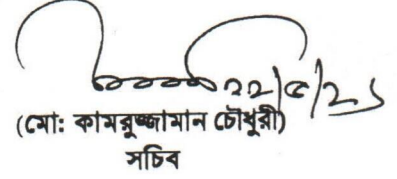 ২২/৫/২১
(মো: কামরুজ্জামান চৌধুরী)
সচিব